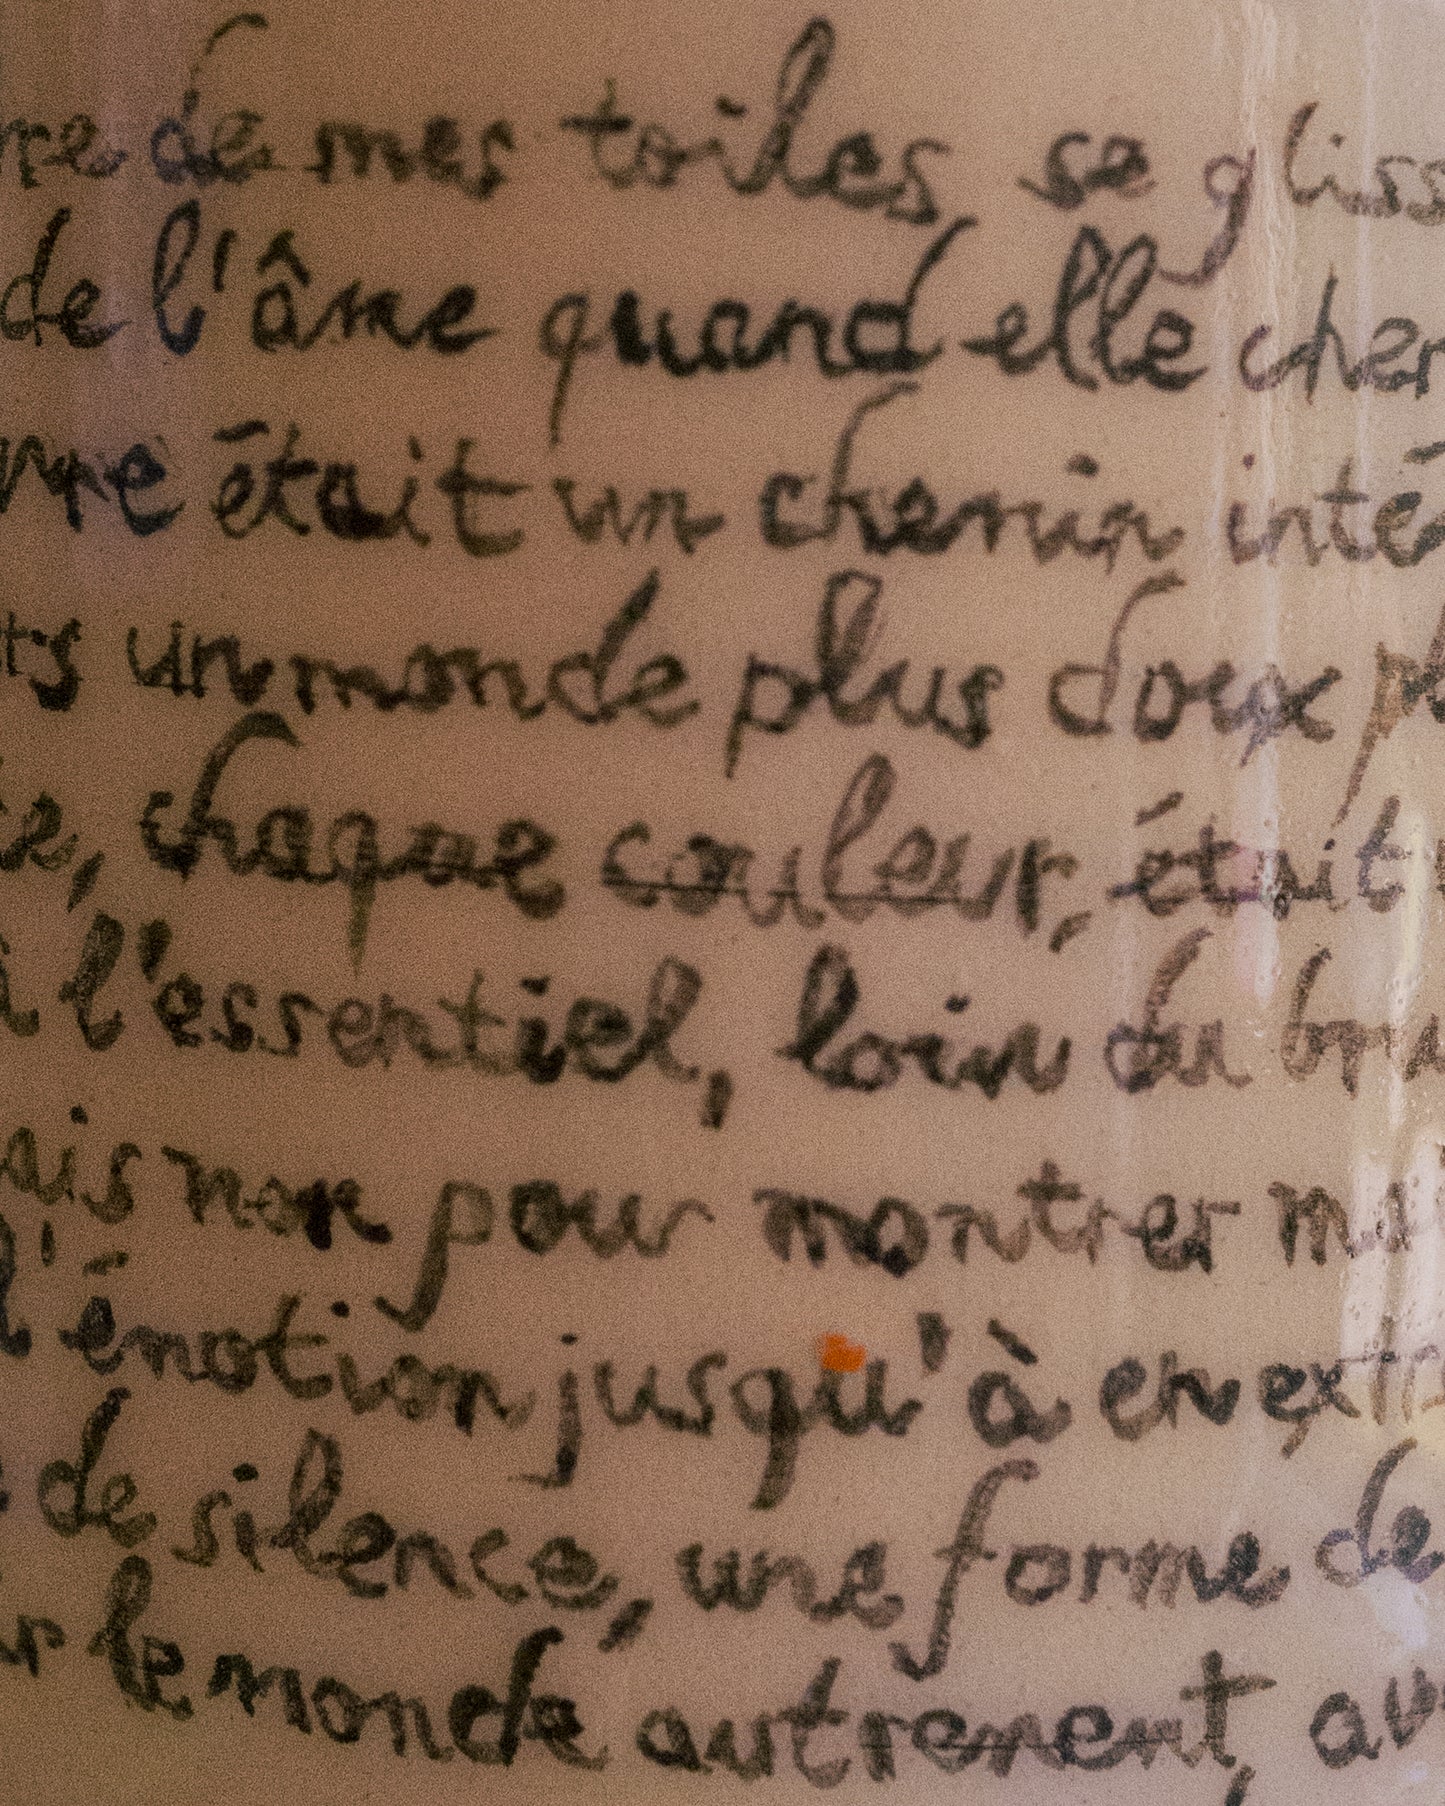 re de mes toiles, se gliss
de l'âme quand elle cher
vre était un chemin inté
ts un monde plus doux pl
ce, chaque couleur, était
à l'essentiel, loin du bru
ais non pour montrer ma
l'émotion jusqu'à en extr
de silence, une forme de
r le monde autrement, av